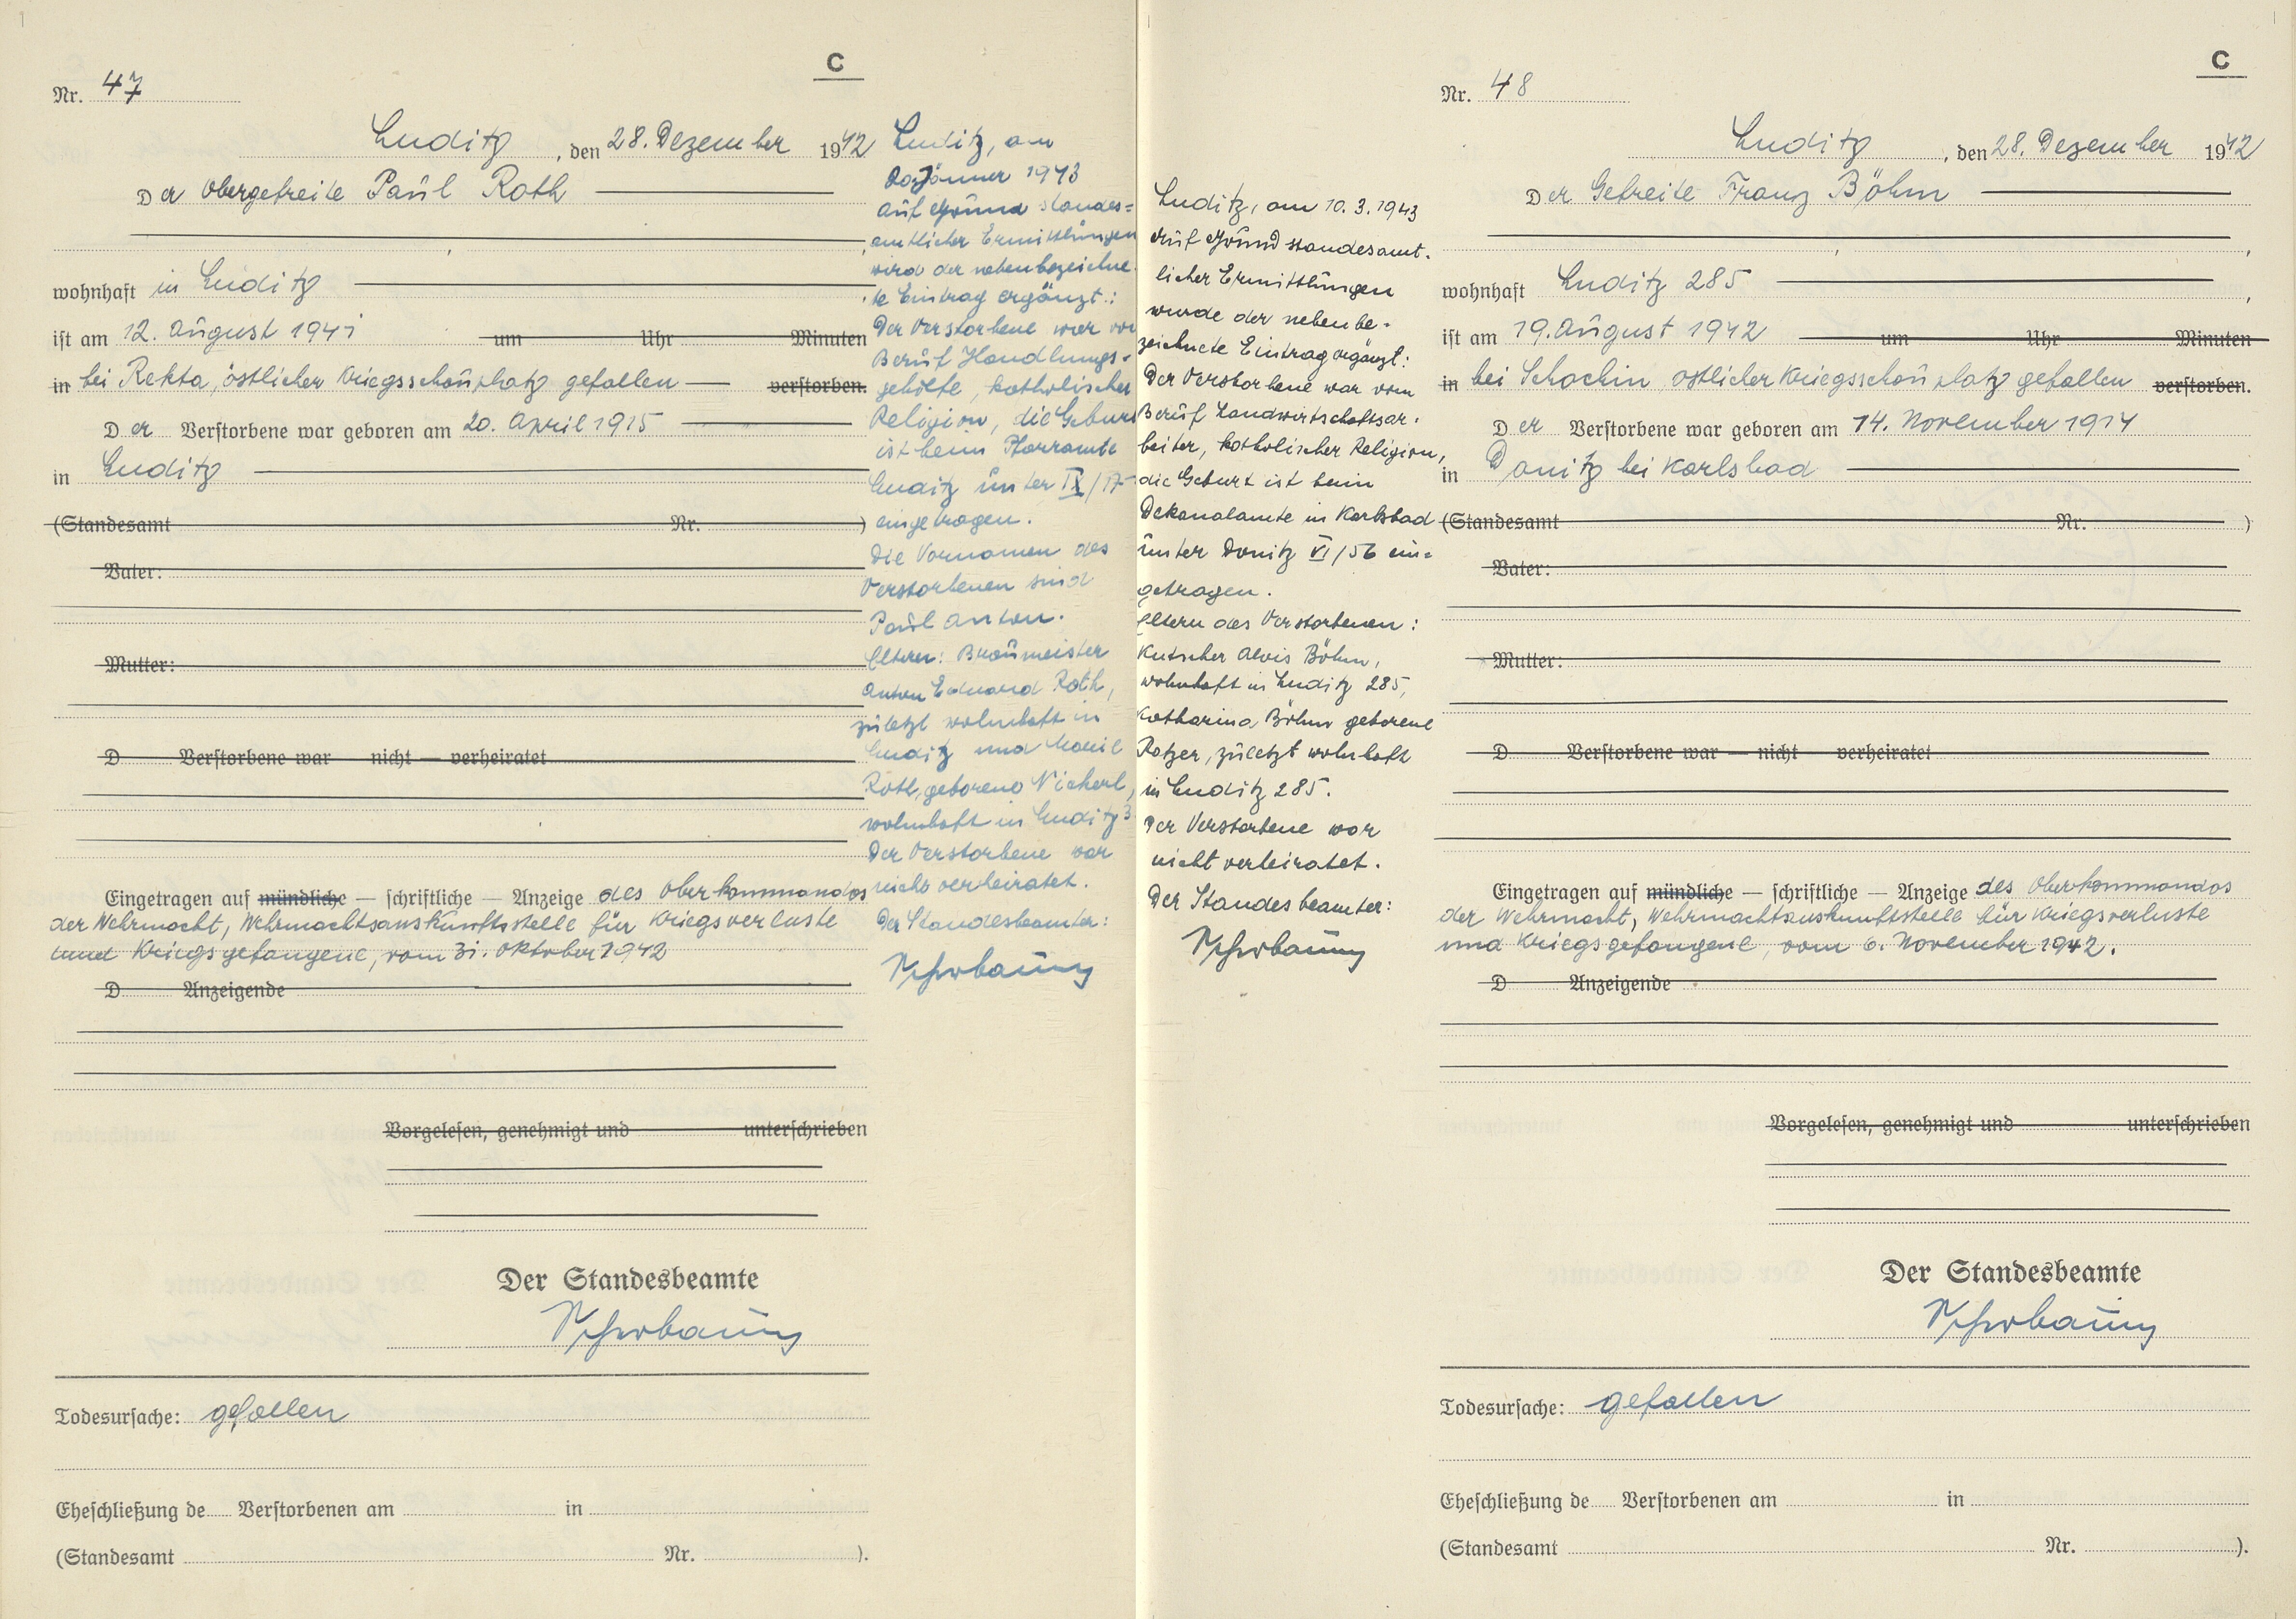 C
Nr. 47
Luditz, den 28. Dezember 1942
Der Obergefreite Paul Roth
wohnhaft in Luditz
ist am 12. August 1941 um Uhr Minuten
in bei Rekta, östlicher Kriegsschauplatz gefallen verstorben.
Der Verstorbene war geboren am 20. April 1915
in Luditz
(Standesamt Nr. )
Vater:
Mutter:
D Verstorbene war — nicht — verheiratet
Eingetragen auf mündliche — schriftliche — Anzeige des Oberkommandos
der Wehrmacht, Wehrmachtsauskunftsstelle für Kriegsverluste
und Kriegsgefangene, vom 31. Oktober 1942
D Anzeigende
Vorgelesen, genehmigt und unterschrieben
Der Standesbeamte
Todesursache: gefallen
Eheschließung de Verstorbenen am in
(Standesamt Nr. ).
Luditz, am
Jänner 1943
Auf Grund standes=
amtlicher Ermittlungen
wird der nebenbezeichne-
te Eintrag ergänzt:
Der Verstorbene war von
Beruf Handlungs-
gehilfe, katholischer
Religion, die Geburt
ist beim Pfarramte
Luditz unter IX/17
eingetragen.
Die Vornamen des
Verstorbenen sind
Paul Anton.
Eltern: Braumeister
Anton Eduard Roth,
zuletzt wohnhaft in
Luditz und
Roth, geborene
wohnhaft in Luditz 3
Der Verstorbene war
nicht verheiratet.
Der Standesbeamte:
Luditz, am 10. 3. 1943
Auf Grund standesamt-
licher Ermittlungen
wurde der nebenbe-
zeichnete Eintrag ergänzt:
Der Verstorbene war vom
Beruf Landwirtschaftsar-
beiter, katholischer Religion,
die Geburt ist beim
Dekanalamte in Karlsbad
unter Donitz VI/56 ein=
getragen.
Eltern des Verstorbenen:
Kutscher Alois Böhm,
wohnhaft in Luditz 285,
Katharina Böhm geborene
Rotzer, zuletzt wohnhaft
in Luditz 285.
Der Verstorbene war
nicht verheiratet.
Der Standesbeamter:
C
Nr. 48
Luditz, den 28. Dezember 1942
Der Gefreite Franz Böhm
wohnhaft Luditz 285
ist am 19. August 1942 um Uhr Minuten
in bei Schachin, östlicher Kriegsschauplatz gefallen verstorben.
Der Verstorbene war geboren am 14. November 1914
in Donitz bei Karlsbad
(Standesamt Nr. )
Vater:
Mutter:
D Verstorbene war — nicht — verheiratet
Eingetragen auf mündliche — schriftliche — Anzeige des Oberkommandos
der Wehrmacht, Wehrmachtauskunftsstelle für Kriegsverluste
und Kriegsgefangene, vom 6. November 1942.
D Anzeigende
Vorgelesen, genehmigt und unterschrieben
Der Standesbeamte
Todesursache: gefallen
Eheschließung de Verstorbenen am in
(Standesamt Nr. ).